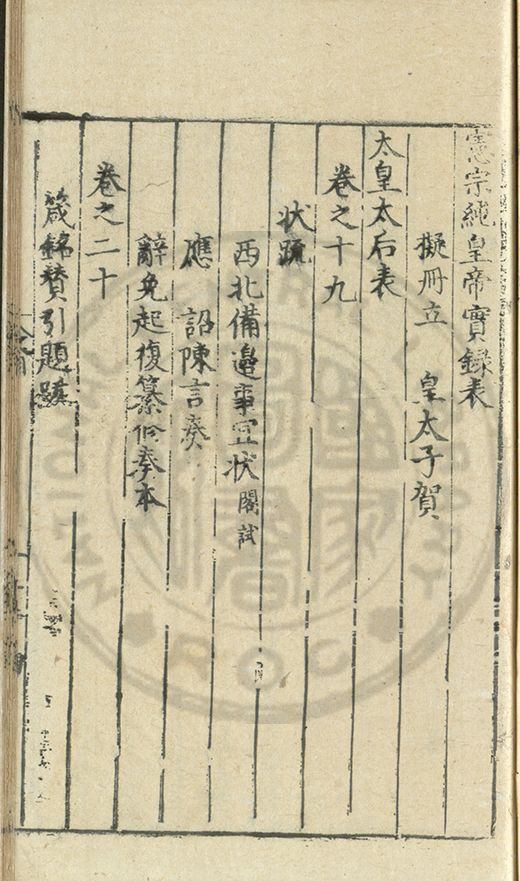 憲宗純皇帝實錄表
擬冊立　皇太子賀
太皇太后表
卷之十九
状疏
西北備邊事宜状閣試
應　詔陳言奏
辭免起復纂修奏本
卷之二十
箴銘賛引題跋